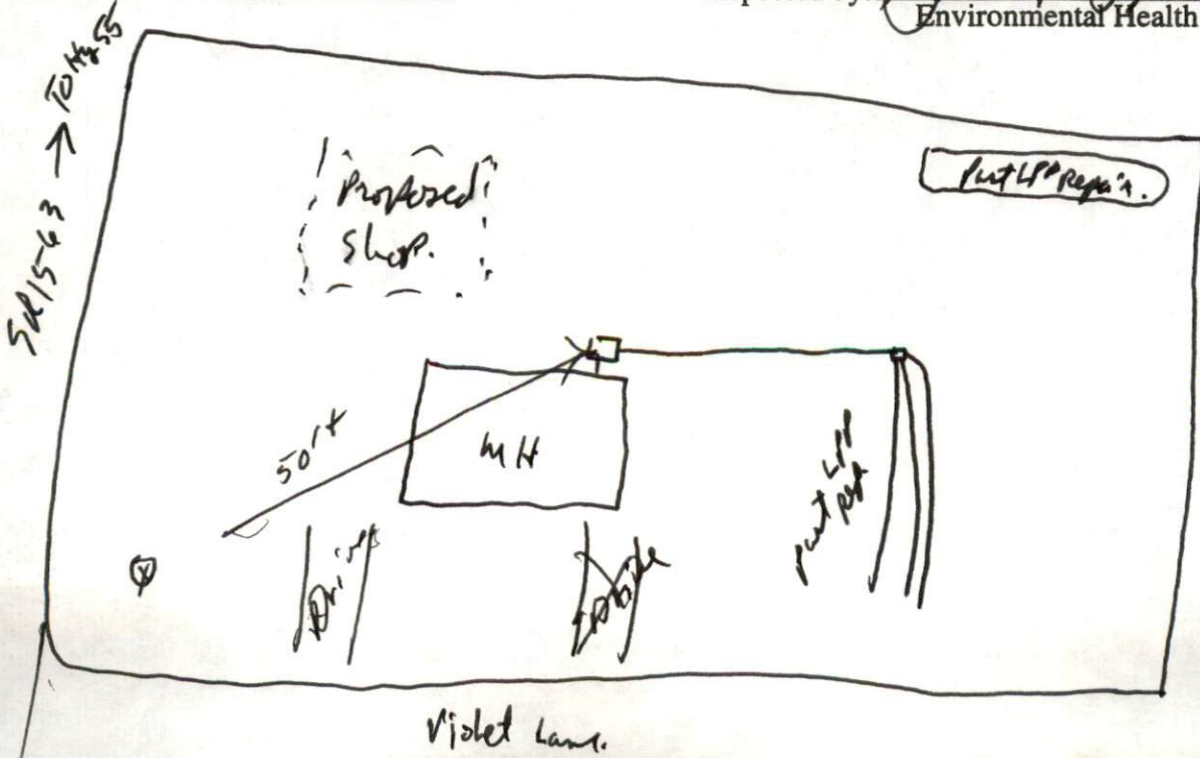 Environmental Health
SR1563 → To Hy 55
Proposed
Shop.
Part LPP Repair.
50'+
MH
Part LPP
Rep
Drive
Drive
Violet Lane.